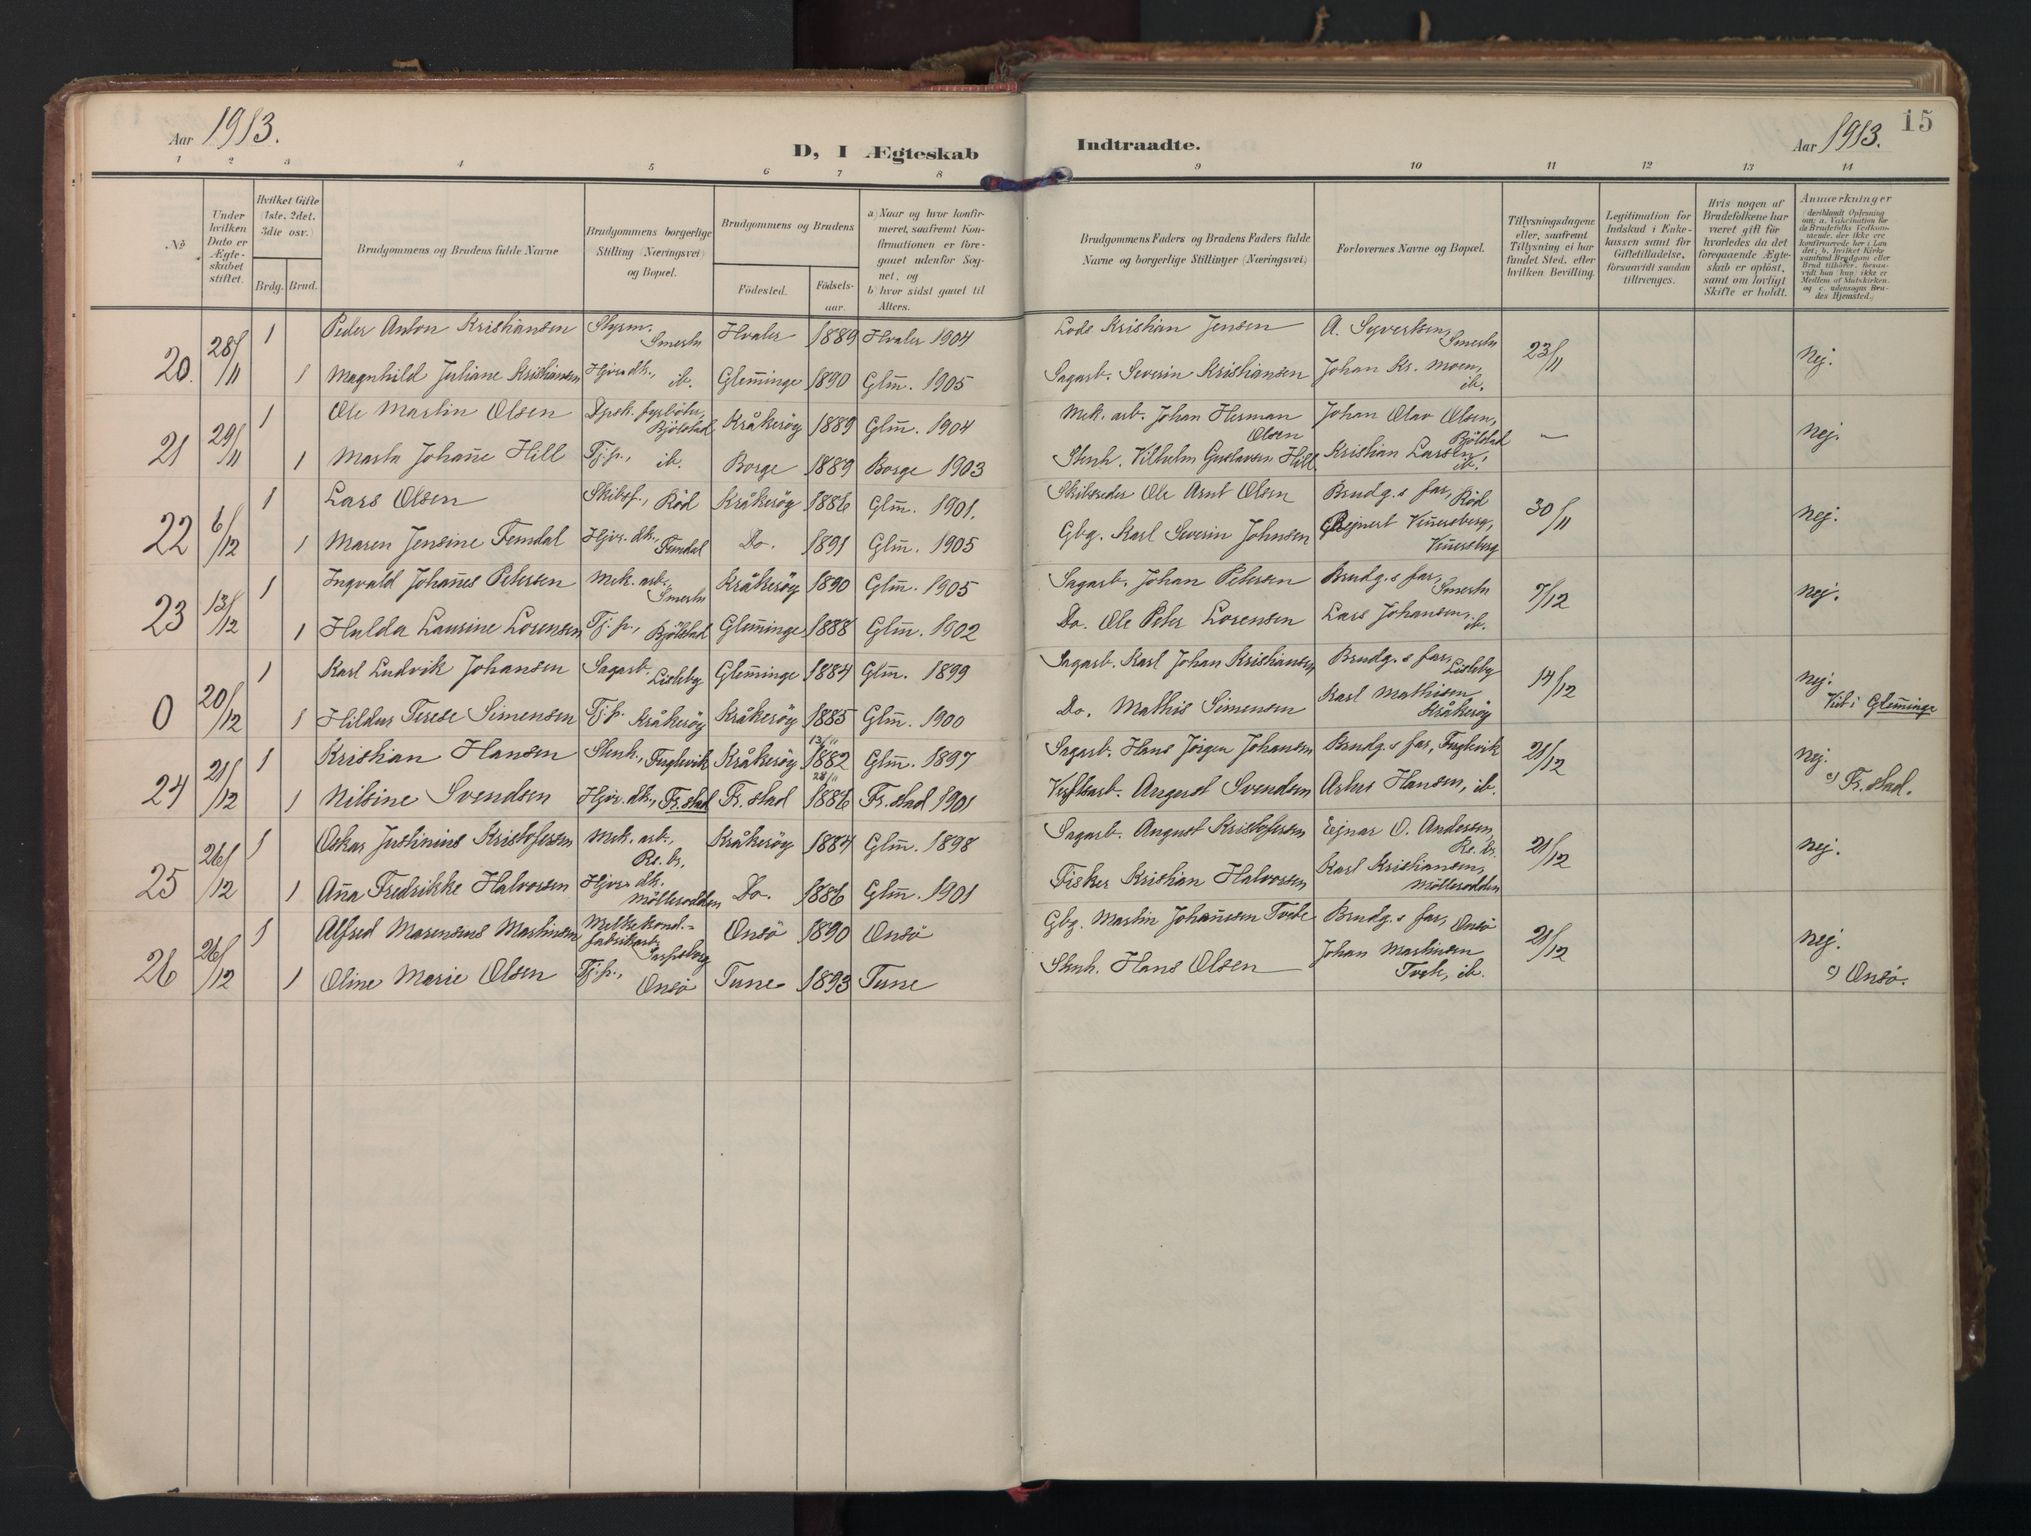 Aar 1913.
D, I Ægteskab Indtraadte.
Aar 1913.
15
1 2 3 4 5 6 7 8 9 10 11 12 13 14
No
Under hvilken Dato er Ægteskabet stiftet.
Hvilket Gifte (1ste, 2det, 3die osv.)
Brdg. Brud.
Brudgommens og Brudens fulde Navne
Brudgommens borgerlige Stilling (Næringsvei) og Bopæl.
Brudgommens og Brudens
Födested. Födselsaar.
a) Naar og hvor konfirmeret, saafremt Konfirmationen er foregaaet udenfor Sognet, og
b) hvor sidst gaaet til Alters.
Brudgommens Faders og Brudens Faders fulde Navne og borgerlige Stillinger (Næringsvei)
Forlovernes Navne og Bopæl.
Tillysningsdagene eller, saafremt Tillysning ei har fundet Sted, efter hvilken Bevilling.
Legitimation for Indskud i Enkekassen samt for Giftetilladelse, forsaavidt saadan tiltrænges.
Hvis nogen af Brudefolkene har været gift før hvorledes da det foregaaende Ægteskab er opløst, samt om lovligt Skifte er holdt.
Anmærkninger
20. 28/11 1 Peder Anton Kristiansen Styrm. Smertu Hvaler 1889 Hvaler 1904 Lods Kristian Jensen A. Syvertsen, Smertu 23/11 Nej.
1 Magnhild Juliane Kristiansen Hjor. dk., ib. Glem̄inge 1890 Glm̄. 1905 Sagarb. Severin Kristiansen Johan Kr. Moen, ib.
21 29/11 1 Ole Martin Olsen Dpsk. fyrböter, Bjölstad Kråkeröy 1889 Glm̄. 1904 Mek. arb. Johan Herman Olsen Johan Olav Olsen, Bjölstad — Nej.
1 Marta Johan̄e Hill Tj.p., ib. Borge 1889 Borge 1903 Stenh. Vilhelm Gustavsen Hill Kristian Larsen, ib.
22 6/12 1 Lars Olsen Skibsf., Röd Kråkeröy 1886 Glm̄. 1901. Skibsreder Ole Arnt Olsen Brudg.s far, Röd 30/11 Nej.
1 Maren Jensine Femdal Hjor. dk., Femdal Do. 1891 Glm̄. 1905 Gbg. Karl Severin Johnsen Rejnert Vin̄ersberg, Vin̄ersberg
23 13/12 1 Ingvald Johan̄es Petersen Mek. arb., Smertu Kråkeröy 1890 Glm̄. 1905 Sagarb. Johan Petersen Brudg.s far, Smertu 7/12 Nej.
1 Hulda Laurine Lorensen Tj. p., Bjölstad Glem̄inge 1888 Glm̄. 1902 Do. Ole Peter Lorensen Lars Johansen, ib.
0 20/12 1 Karl Ludvik Johansen Sagarb. Lisleby Glem̄inge 1884 Glm̄. 1899 Sagarb. Karl Johan Kristiansen Brudg.s far, Lisleby 14/12 Nej.
1 Hildur Terese Simensen Tj.p. Kråkeröy Kråkeröy 1885 Glm̄. 1900 Do. Mathis Simensen Karl Mathisen Kråkeröy Viet i Glem̄inge
24 21/12 1 Kristian Hansen Stenh., Fuglevik Kråkeröy 13/11 1882 Glm̄. 1897 Sagarb. Hans Jörgen Johansen Brudg.s far, Fuglevik 21/12 Nej.
1 Nilsine Svendsen Hjor. dk., Fr.stad Fr.stad 28/11 1886 Fr.stad 1901 Verftsarb. August Svendsen Artur Hansen, ib. c) Fr.stad.
25 26/12 1 Oskar Justinius Kristofersen Mek. arb., Re. br. Kråkeröy 1884 Glm̄. 1898 Sagarb. August Kristofersen Ejnar O. Andersen, Re. br. 21/12 Nej.
1 An̄a Fredrikke Halvorsen Hjor. dk. Möllerodden Do. 1886 Glm̄. 1901 Fisker Kristian Halvorsen Karl Kristiansen, Möllerodden
26 26/12 1 Alfred Marensius Martinsen Melkekond.-fabrikarb. Sarpsborg Onsö 1890 Onsö Gbg. Martin Johan̄ssen Tvete Brudg.s far, Onsö 21/12 Nej.
1 Oline Marie Olsen Tj.p., Onsö Tune 1893 Tune Stenh. Hans Olsen Johan Martinsen Tvete, ib. c) Onsö.